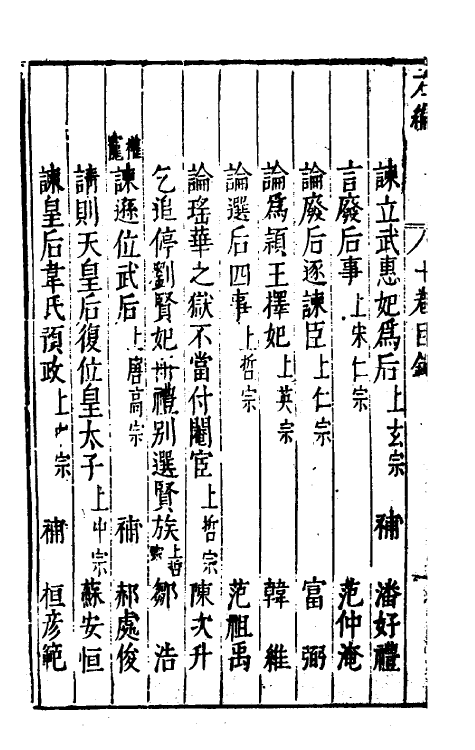 右編 十卷目錄
諫立武惠妃爲后上玄宗 補 潘好禮
言廢后事上宋仁宗 范仲淹
論廢后逐諫臣上仁宗 富弼
論爲潁王擇妃上英宗 韓維
論選后四事上哲宗 范祖禹
論瑤華之獄不當付閹宦上哲宗 陳次升
乞追停劉賢妃冊禮別選賢族上哲宗 鄒浩
權寵
諫遜位武后上唐高宗 補 郝處俊
請則天皇后復位皇太子上中宗 蘇安恒
諫皇后韋氏預政上中宗 補 桓彥範